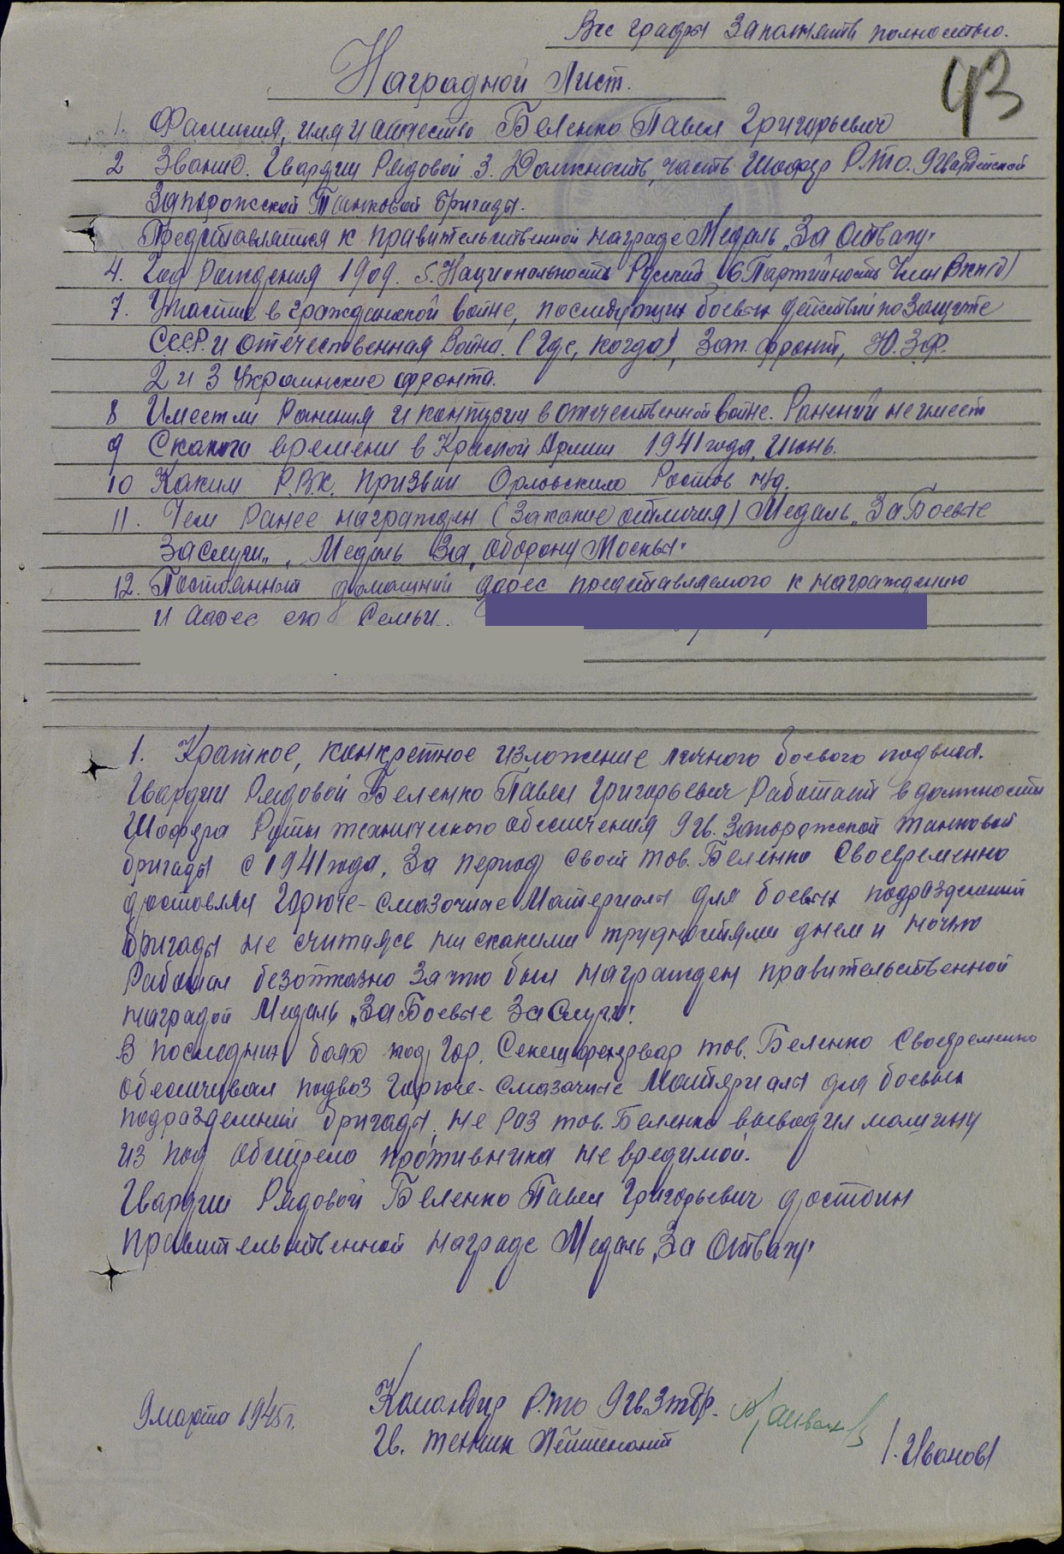 Все графы заполнять полностью.
43
Наградной Лист.
1. Фамилия, имя и отчество Беленко Павел Григорьевич
2 Звание. Гвардии Рядовой 3. Должность, часть Шофер Р.т.о. 9 Гвардейской
Запорожской Танковой бригады.
Представляется к правительственной награде Медаль „За Отвагу"
4. Год Рождения 1909. 5. Национальность Русский 6 Партийность Член ВКП(б)
7. Участие в гражданской войне, последующих боевых действий по защите
СССР и отечественная Война. (где, когда), Зап. фронт, Ю.З.Ф.
2 и 3 Украинские фронта.
8 Имеет ли Ранения и контузии в отечественной войне. Ранений не имеет
9 С какого времени в Красной Армии 1941 года, Июнь.
10 Каким Р.В.К. призван Орловским Ростов н/д.
11. Чем Ранее награжден (За какие отличия) Медаль „За Боевые
Заслуги", Медаль „За Оборону Москвы"
12. Постоянный домашний адрес представляемого к награждению
и Адрес его Семьи.
1. Краткое, конкретное изложение личного боевого подвига.
Гвардии Рядовой Беленко Павел Григорьевич Работает в должности
Шофера Роты технического обеспечения 9 гв. Запорожской танковой
бригады с 1941 года. За период своей тов. Беленко Своевременно
доставлял Горюче-смазочные Материалы для боевых подразделений
бригады не считаясь ни с какими трудностями днем и ночью
Работал безотказно за что был награжден правительственной
наградой Медаль „За Боевые Заслуги".
В последних боях под гор. Секешфехервар тов. Беленко Своевременно
обеспечивал подвоз Горюче-смазочные Материалы для боевых
подразделений бригады, не раз тов. Беленко выводил машину
из под обстрела противника невредимой.
Гвардии Рядовой Беленко Павел Григорьевич достоин
правительственной награде Медаль „За Отвагу"
9 марта 1945 г.
Командир Р.т.о 9 гв.Зтбр.
Гв. техник Лейтенант
/. Иванов/